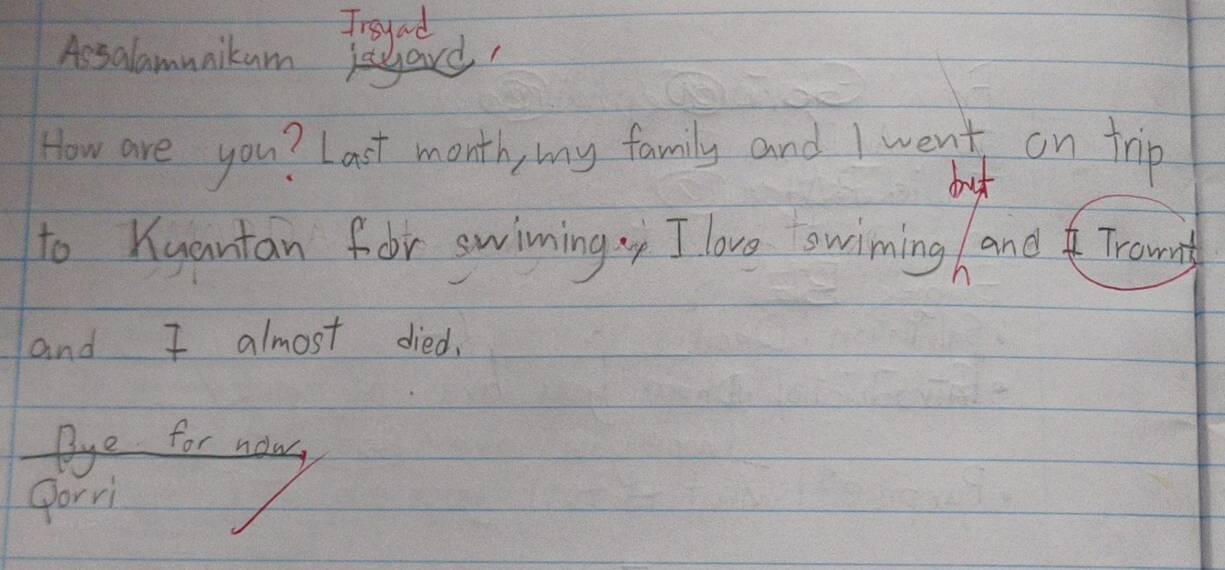 Irsyad
Assalamunaikum isyard,
How are you? Last month, my family and I went on trip
but
to Kyantan for swiming. I love swiming and I Trownt
and I almost died.
Bye for now,
Qorri